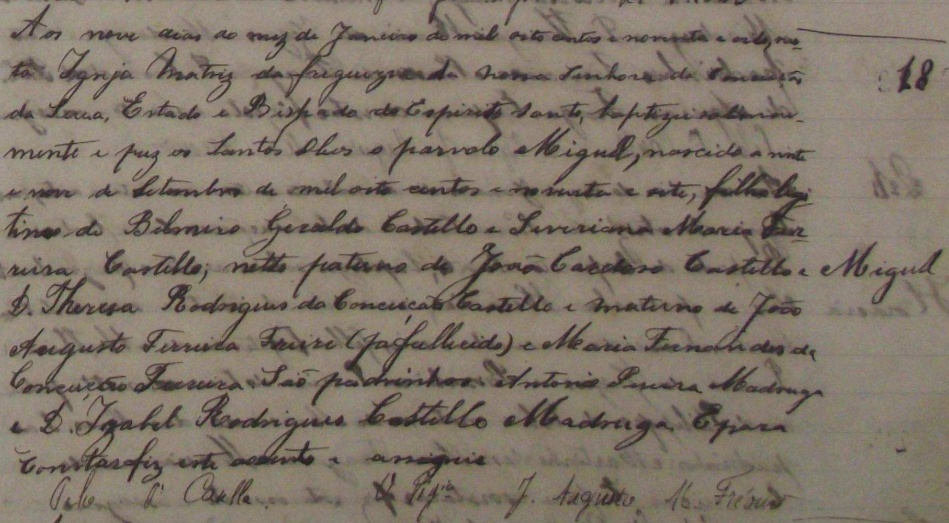 Aos nove dias do mez de Janeiro de mil oito centos e noventa e oito, nes-
ta Igreja Matriz da freguezia da nossa Senhora da Conceição
18
da Serra, Estado e Bispado do Espirito Santo, baptizei solemne-
mente e puz os Santos Oleos o parvolo Miguel, nascido a vinte
e nove de Setembro de mil oito centos e noventa e sete, filho legi-
timo de Belmiro Geraldo Castello e Severiana Maria Fer-
reira Castello; netto paterno de João Cardoso Castello e
Miguel
D. Theresa Rodrigues da Conceição Castello e materno de João
Augusto Ferreira Freire (já fallecido) e Maria Fernandes da
Conceição Ferreira. São padrinhos: Antonio Pereira Madruga
e D. Izabel Rodrigues Castello Madruga. E para
constar fiz este acento e assignei
O Vigrº J. Augusto M.